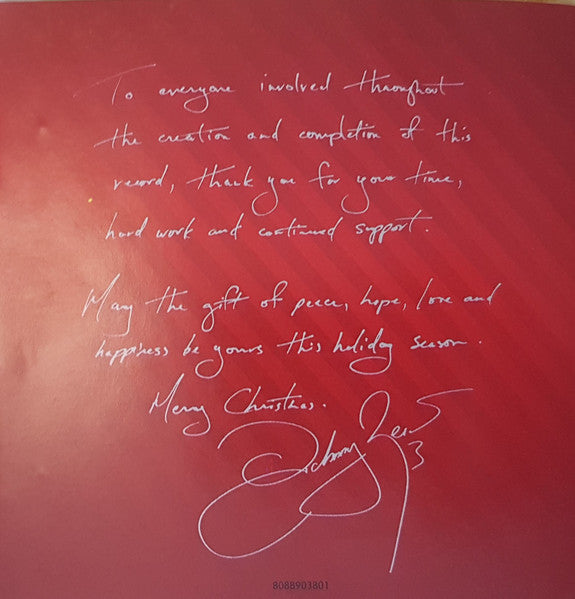 To everyone involved throughout
the creation and completion of this
record, thank you for your time,
hard work and continued support.
May the gift of peace, hope, love and
happiness be yours this holiday season.
Merry Christmas.
Johnny Reid
3
8088903801